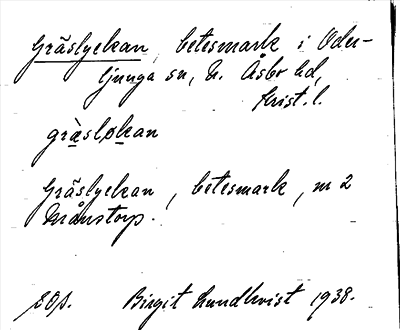 Gräslyckan, betesmark i Oder-
ljunga sn, N. Åsbo hd,
Krist. l.
gràsløkan
Gräslyckan, betesmark, nr 2
Månstorp.
Birgit Lundkvist 1938.